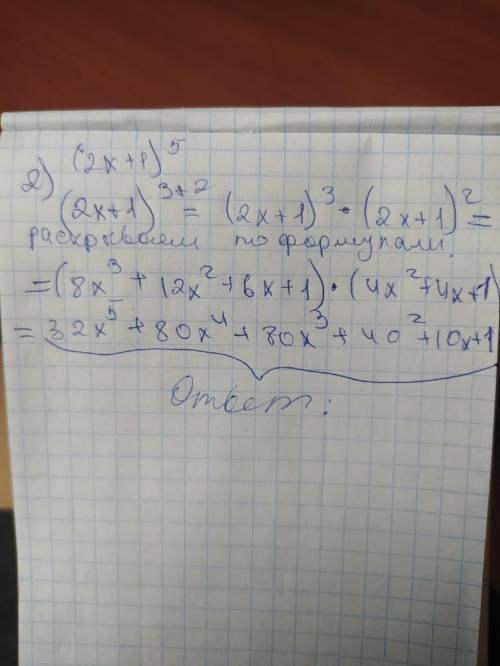 2) (2x+1)^5
(2x+1)^{3+2} = (2x+1)^3 · (2x+1)^2 =
раскрываем по формулам.
= (8x^3 + 12x^2 + 6x + 1) · (4x^2 + 4x + 1)
= 32x^5 + 80x^4 + 80x^3 + 40^2 + 10x + 1
Ответ: